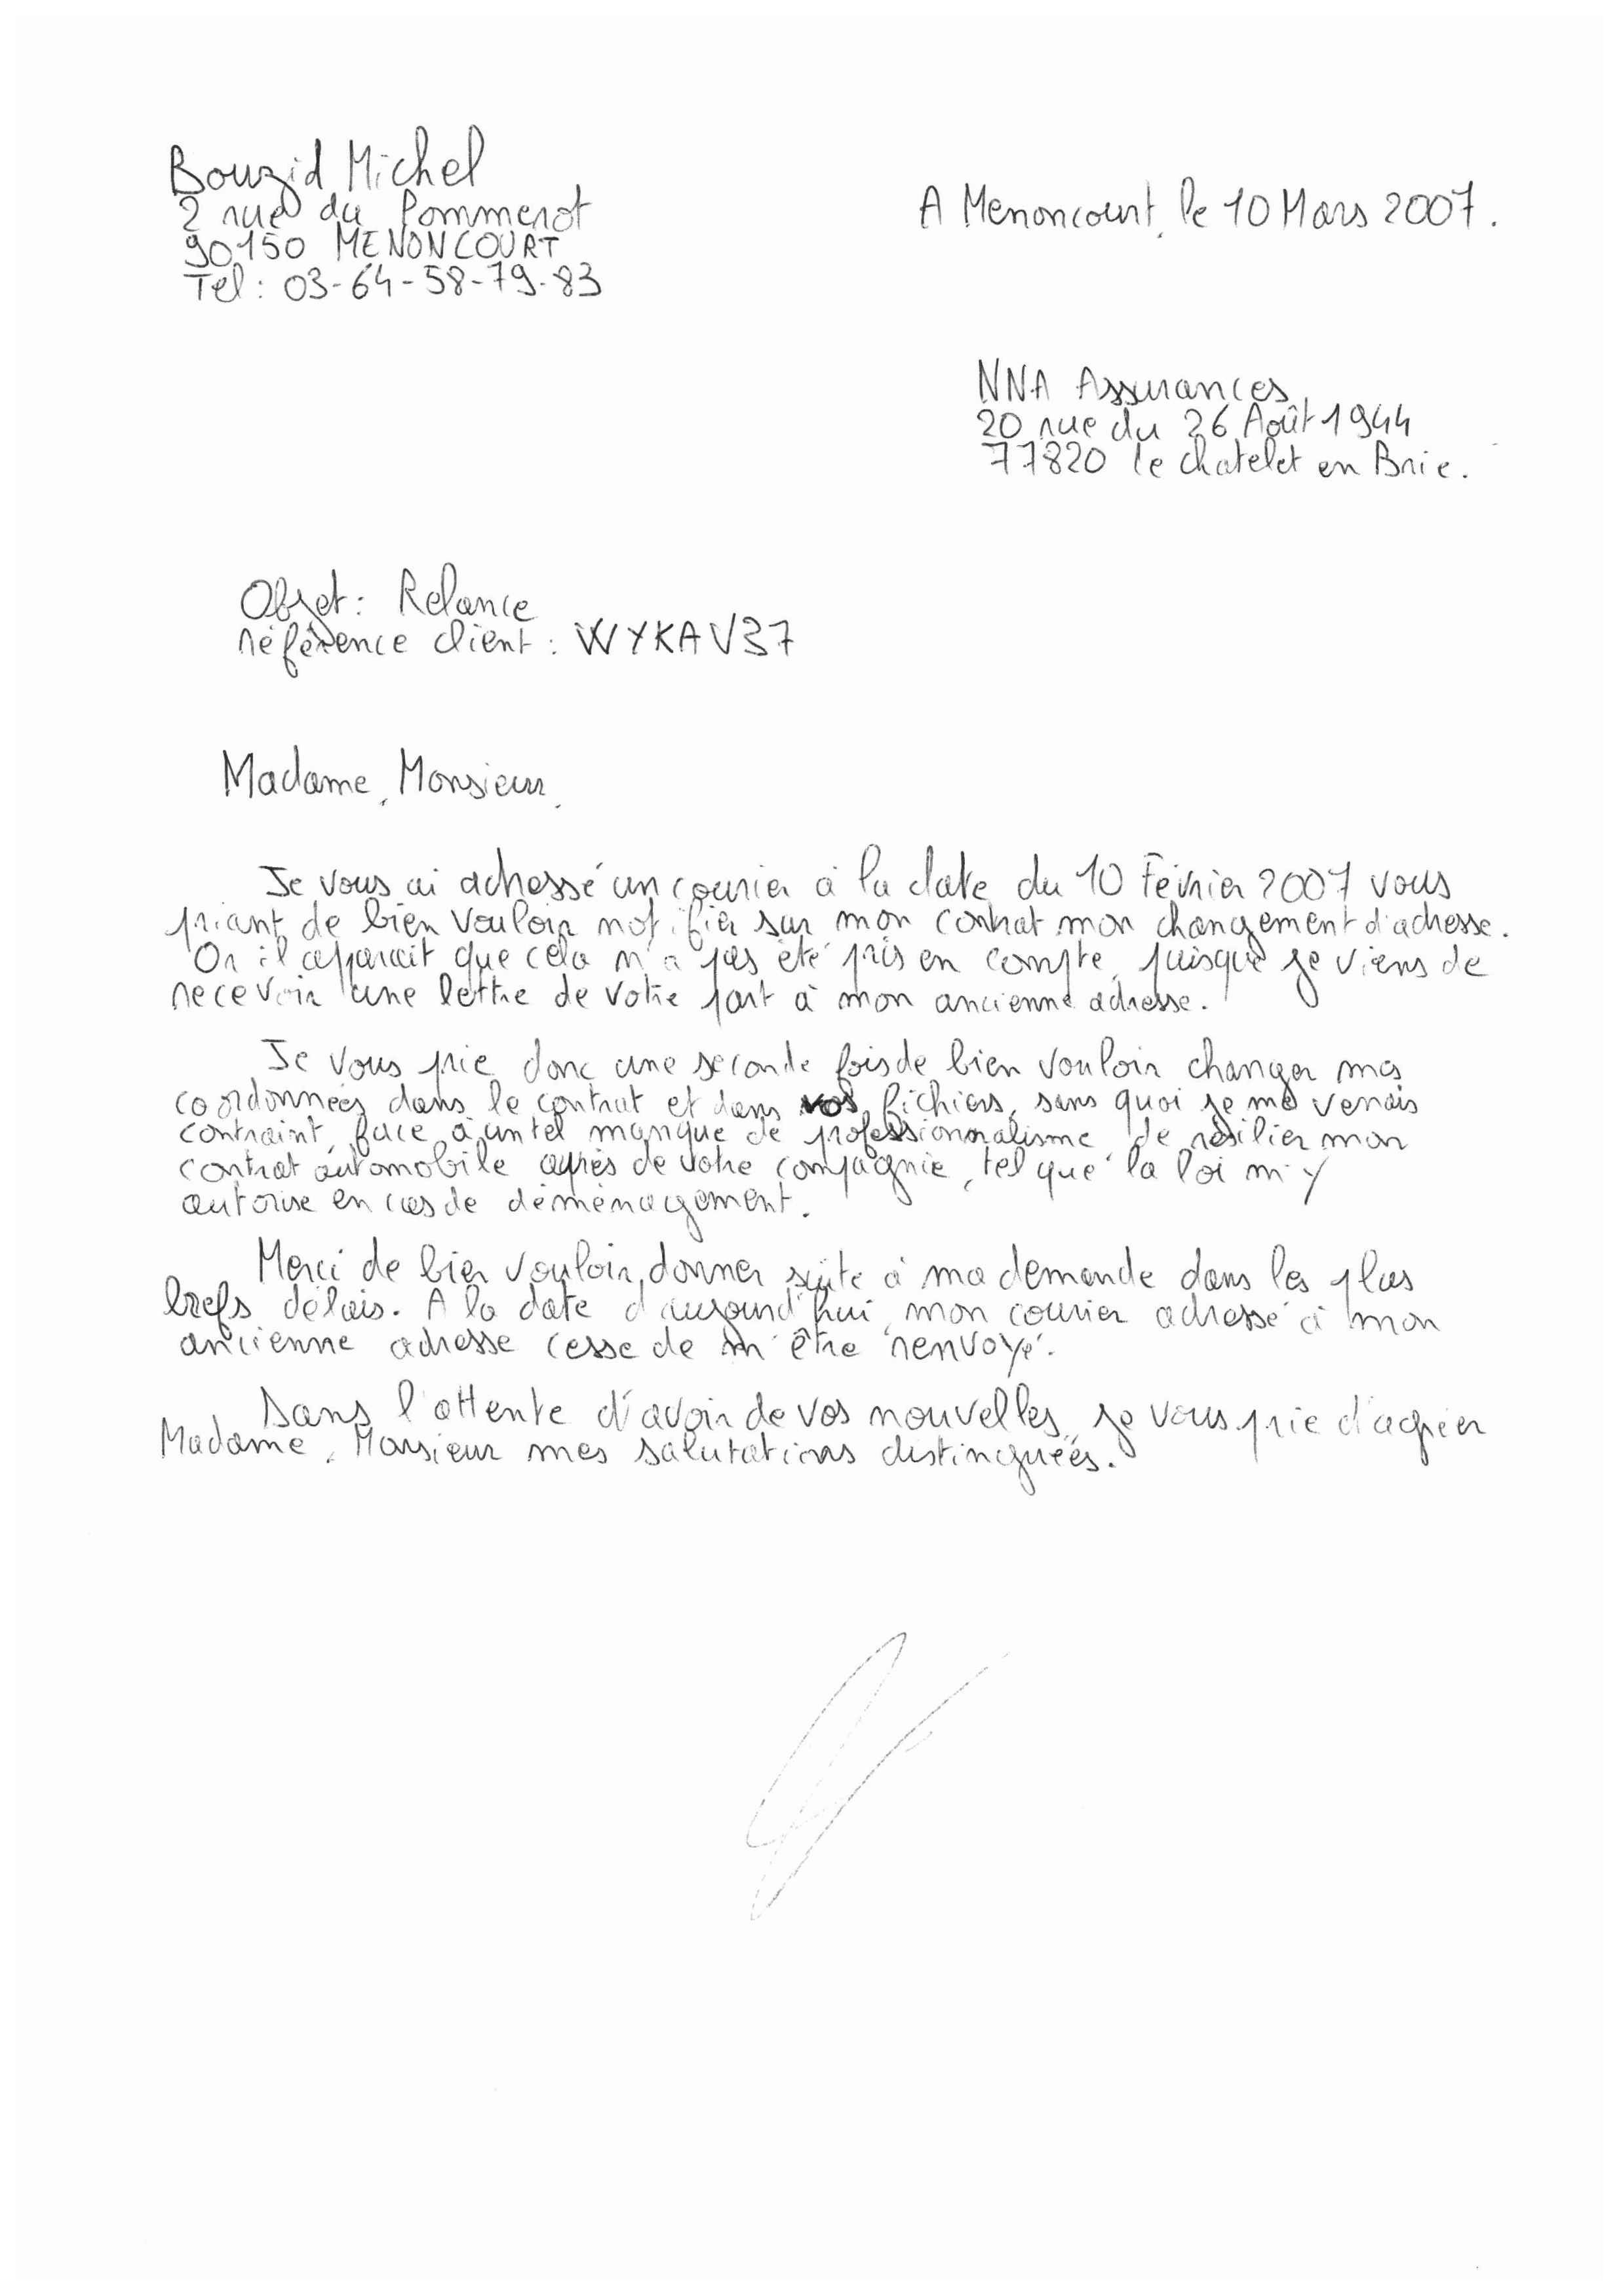 Bouzid Michel
2 rue du Pommerot
90150 MENONCOURT
Tel : 03-64-58-79-83
A Menoncourt, le 10 Mars 2007.
NNA Assurances
20 rue du 26 Août 1944
77820 le chatelet en Brie.
Objet : Relance
référence client : WYKAV37
Madame, Monsieur,
Je vous ai adressé un courier à la date du 10 Février 2007 vous
priant de bien vouloir notifier sur mon contrat mon changement d'adresse.
Or il apparait que cela n'a pas été pris en compte, puisque je viens de
recevoir une lettre de votre part à mon ancienne adresse.
Je vous prie donc une seconde fois de bien vouloir changer mes
coordonnées dans le contrat et dans vos fichiers, sans quoi je me verrais
contraint, face à un tel manque de professionnalisme, de résilier mon
contrat automobile après de votre compagnie, tel que la loi m'y
autorise en cas de déménagement.
Merci de bien vouloir donner suite à ma demande dans les plus
brefs délais. A la date d'aujourd'hui, mon courier adressé à mon
ancienne adresse cesse de m'être renvoyé.
Dans l'attente d'avoir de vos nouvelles, je vous prie d'agréer
Madame, Monsieur mes salutations distinguées.